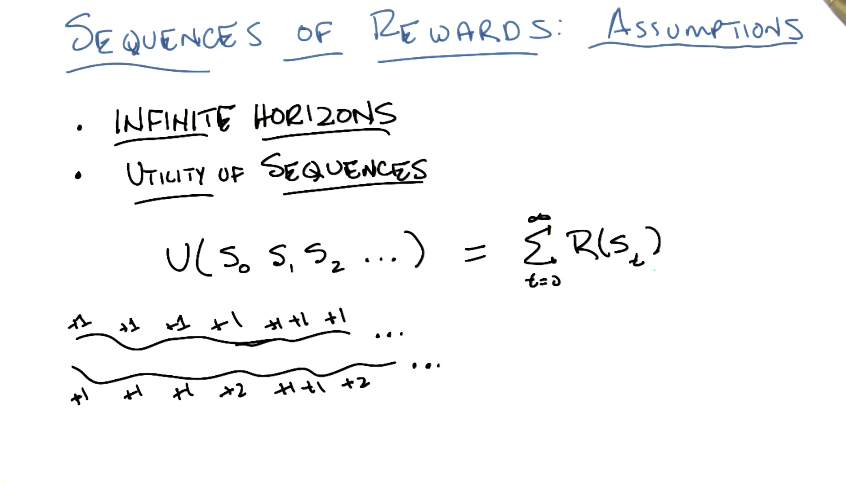 SEQUENCES OF REWARDS: ASSUMPTIONS
· INFINITE HORIZONS
· UTILITY OF SEQUENCES
U(S₀ S₁ S₂ ...) = ∑_{t=0}^{∞} R(S_t)
+1 +1 +1 +1 +1 +1 +1 ...
+1 +1 +1 +2 +1 +1 +2 ...